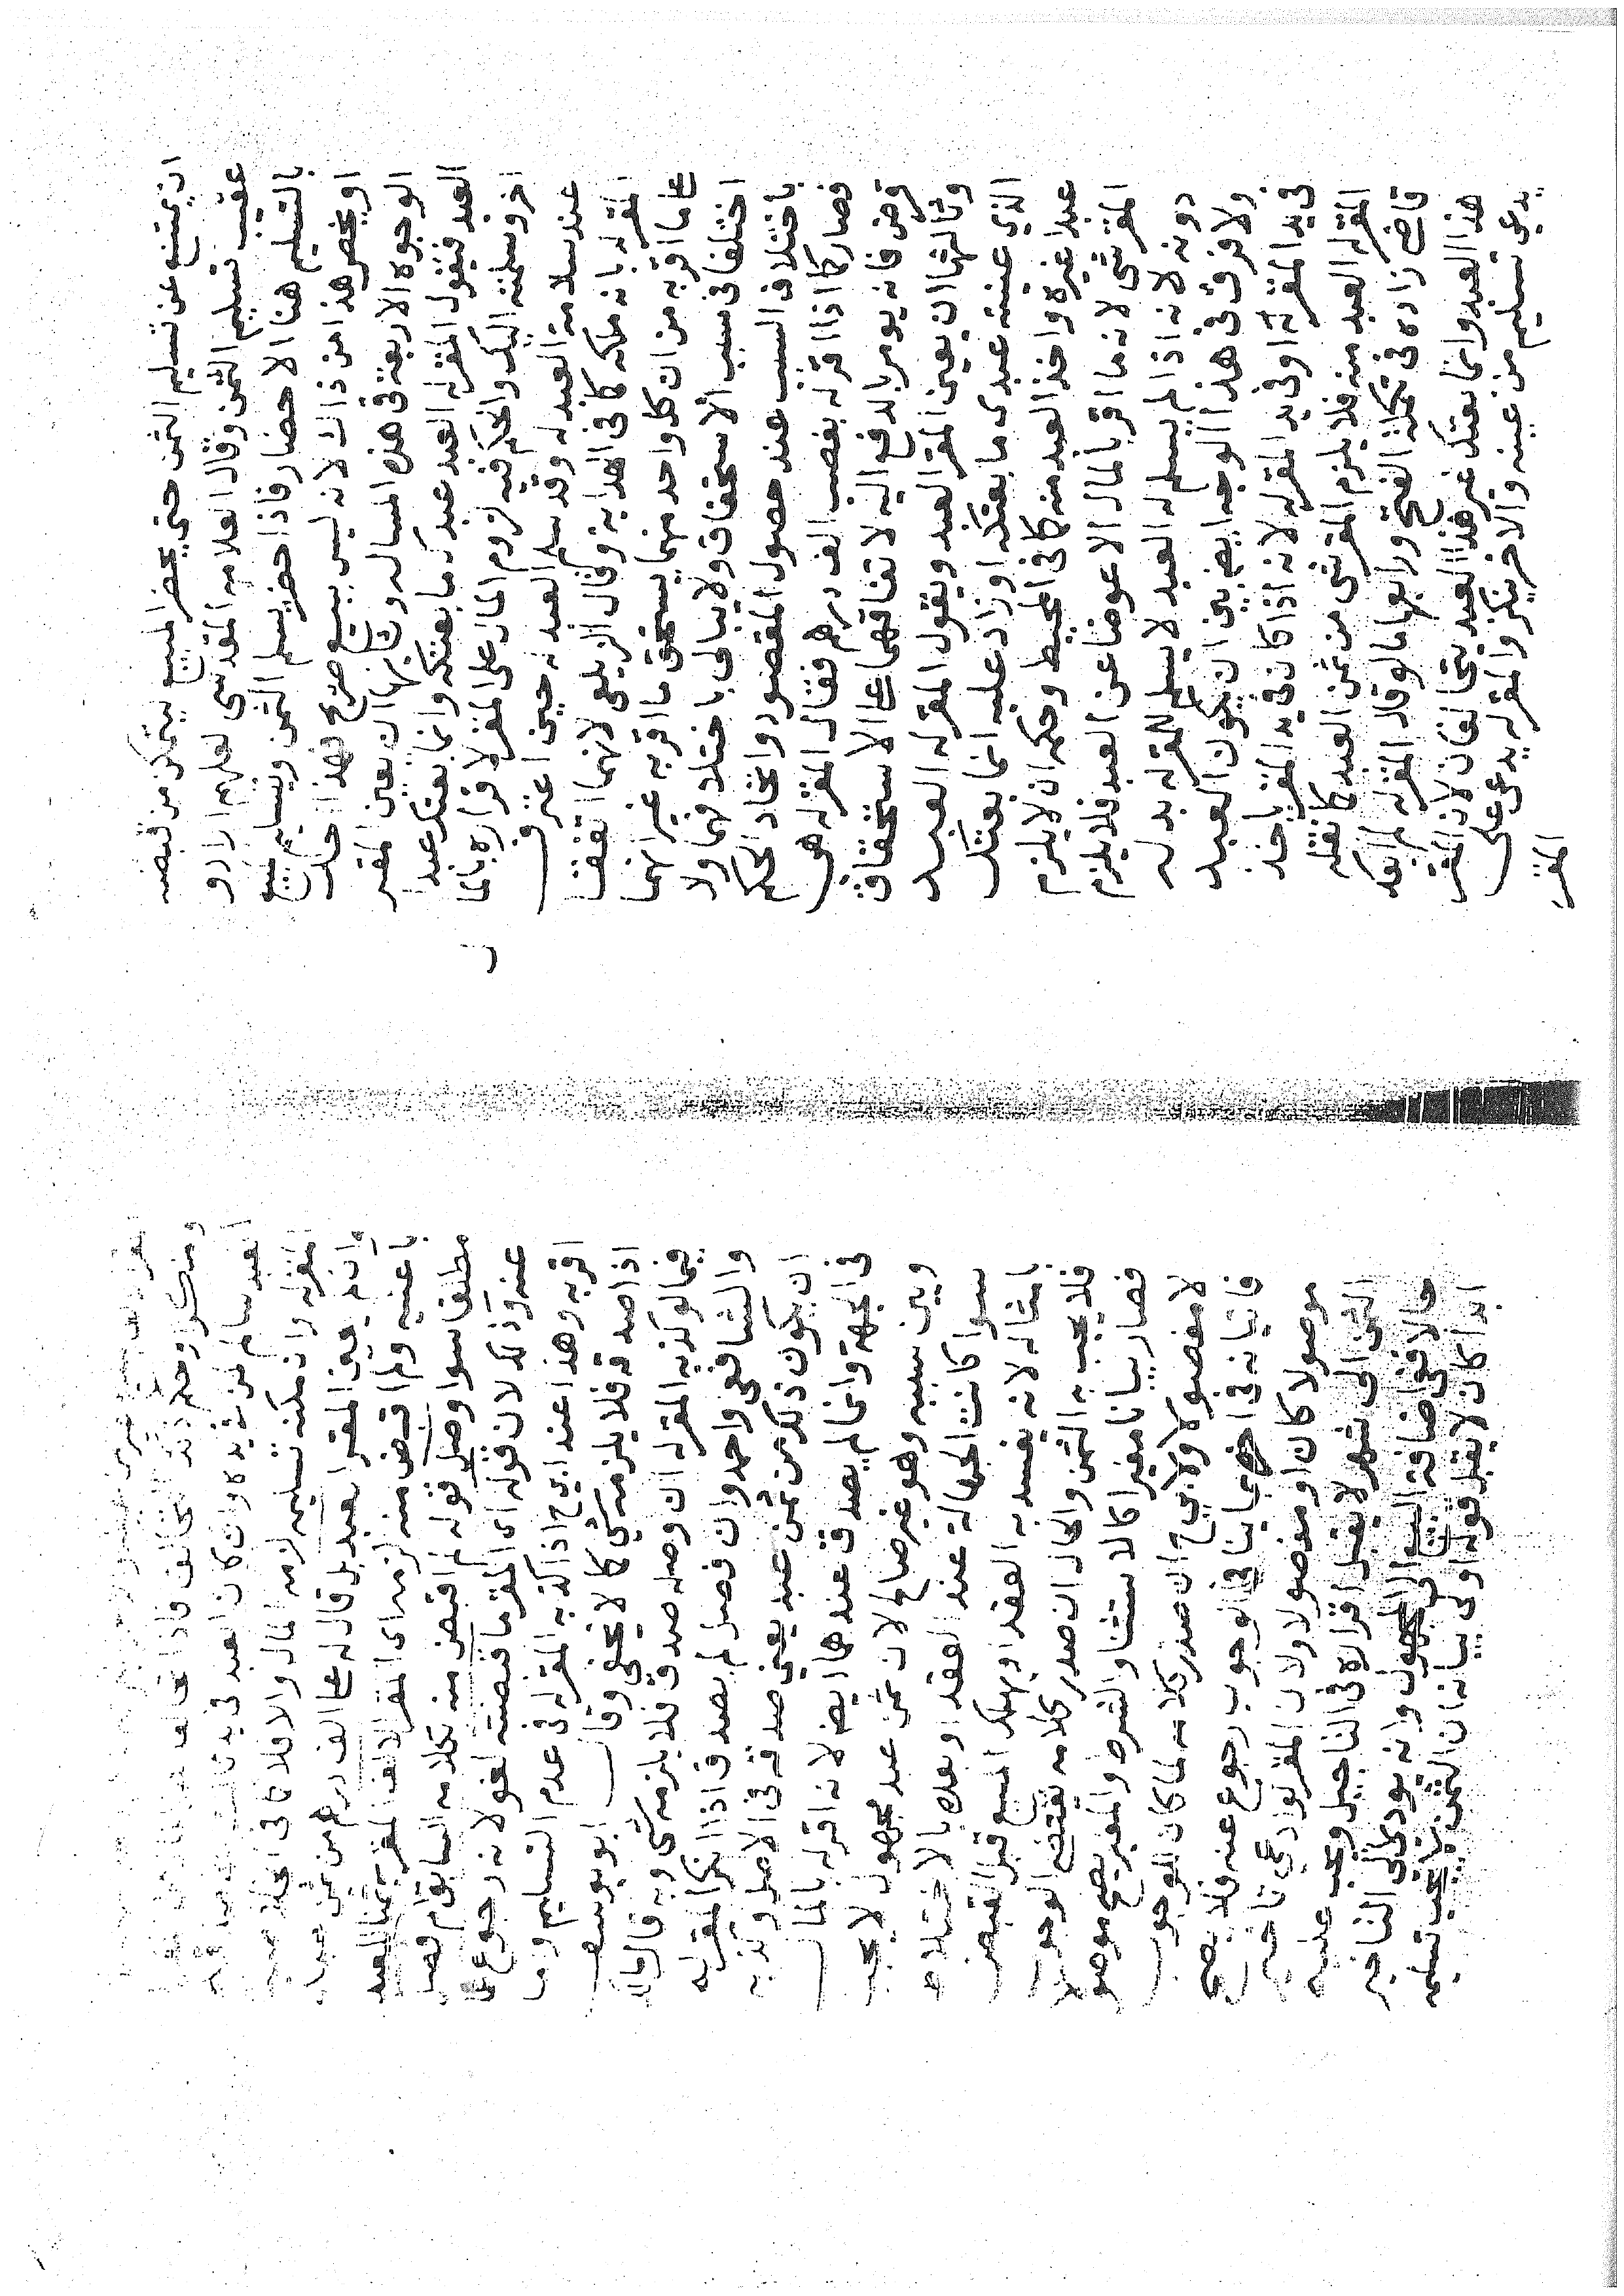 ان يمتنع عن تسليم الثمن حتى يحضر المبيع يتمكن من قبضه
عقيب تسليم الثمن وقال العلامه المقدسى لعلهم ارادو
بالتسليم هنا الاحضار فاذا حضر يسلم الثمن ويتسلم المبيع
او يخص هذا من ذاك لانه ليس ببيع صريح فهذا احد
الوجوه الاربعة فى هذه المساله وثانيها ان يعين المقر
العبد فيقول المقر له العبد عبدك ما بعتكه وانما بعتك عبدا
اخر وسلمته اليك والحكم فيه لزوم المال على المقر لاقراره بانما
عند سلامة العبد له وقد سلم العبد له حين اعترف
المقر له بانه ملكه كما فى الهداية وقال الزيلعى لانهما اتفقا
على ما اقر به من ان كل واحد منهما يستحق ما اقر به غير انهما
اختلفا فى سبب الاستحقاق ولا يبالى باختلافهما ولا
باختلاف السبب عند حصول المقصود واتحاد الحكم
فصار كما اذا اقر له بغصب الف درهم فقال المقر له هى
قرض فانه يومر بالدفع اليه لاتفاقهما على الاستحقاق
وثالثها ان يعين المقر العبد ويقول المقر له العبد
الذى عينته عبدى ما بعتكه او زاد عليه انما بعتك
عبدا غيره واخذ العبد منه كما فى المحيط وحكمه ان لا يلزم
المقر شى لانه ما اقر بالمال الا عوضا عن العبد فلا يلزم
دونه لانه اذا لم يسلم له العبد لا يسلم للمقر له بدله
ولا فرق فى هذا الوجه ايضا بين ان يكون العبد
فى يد المقر له او فى يد المقر له لانه اذا كان فى يد المقر ياخذ
المقر له العبد منه فلا يلزم المقر شى من ثمن العبد كما نقله
قاضى زاده فى تكملة الفتح ورابعها ما لو قال المقر له لم ابعك
هذا العبد وانما بعتك غير هذا العبد يتحالفان لان المقر
يدعى تسليم من عينه والاخر ينكر والمقر له يدعى على
المقر
العبد سالم لمن فى يده وان كان العبد فى يد
المقر له وان امكنه تسليمه لزمه المال والا فلا كما فى
وان لم يعين المقر العبد بل قال له على الف درهم من ثمن عبد
باعنيه ولم اقبض منه لزمه اى المقر الالف المقر به ثمنا للعبد
مطلقا سوا وصل قوله لم اقبض منه بكلامه السابق ام فصل
عنه وذلك لان قوله اى المقر ما قبضته لغو لانه رجوع عما
اقر به وهذا عند ابى ح اذا كذبه المقر له فى عدم التسليم واما
اذا صدقه فلا يلزمه شى كما لا يخفى وقال ابو يوسف
فيما لو كذبه المقر له ان وصله صدق فلا يلزمه شى وبه قال مالك
والشافعى واحمد وان فصل لم يصدق اذا انكر المقر له
ان يكون ذلك من ثمن عبد يعنى صدقه فى الاصل وكذبه
فى الجهة وانما لم يصدق عندهما ايضا لانه اقر له بالمال
وبين سببه وهو غير صالح لان ثمن عبد مجهول لا يجب
سوا كانت الجهالة عند العقد او بعده بالاختلاط
بامثاله لانه يفسد به العقد او بهلاك المبيع قبل القبض
فلا يجب به الثمن والحال ان صدر كلامه يقتضى الوجوب
فصار بيانا مغيرا كالاستثنا والشرط والمغير يصح موصولا
لا مفصولا ولابى ح ان صدر كلامه لما كان للوجوب
فاتيانه فى اخره بما ينافى الوجوب رجوع عنه فلا يصح
موصولا كان او مفصولا ولان المقر لو ادعى تاخير
الثمن الى شهر لا يقبل اقراره فى التاجيل ويجب عليه
حالا فى اضافة البيع الى المجهول وانه يودى الى التاخير
ابدا كان لا يقبل قوله اولى بيانه ان الثمن لا يجب تسليمه